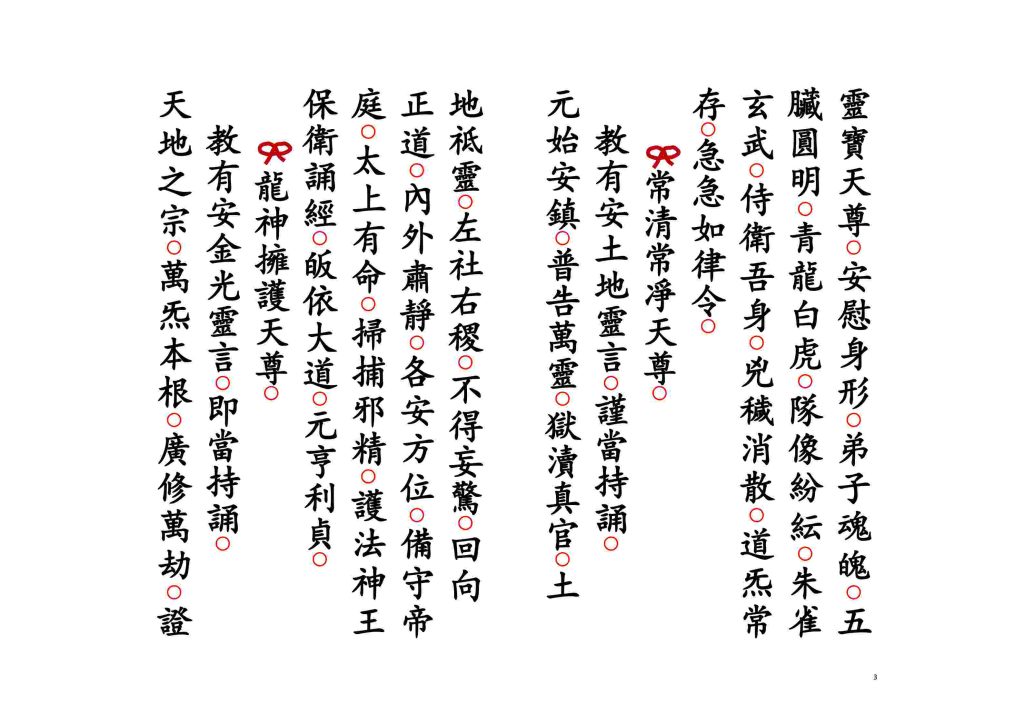 靈寶天尊○安慰身形○弟子魂魄○五
臟圓明○青龍白虎○隊像紛紜○朱雀
玄武○侍衛吾身○兇穢消散○道炁常
存○急急如律令○
常清常淨天尊○
教有安土地靈言○謹當持誦○
元始安鎮○普告萬靈○獄瀆真官○土
地祗靈○左社右稷○不得妄驚○回向
正道○內外肅靜○各安方位○備守帝
庭○太上有命○掃捕邪精○護法神王
保衛誦經○皈依大道○元亨利貞○
龍神擁護天尊○
教有安金光靈言○即當持誦○
天地之宗○萬炁本根○廣修萬劫○證
3